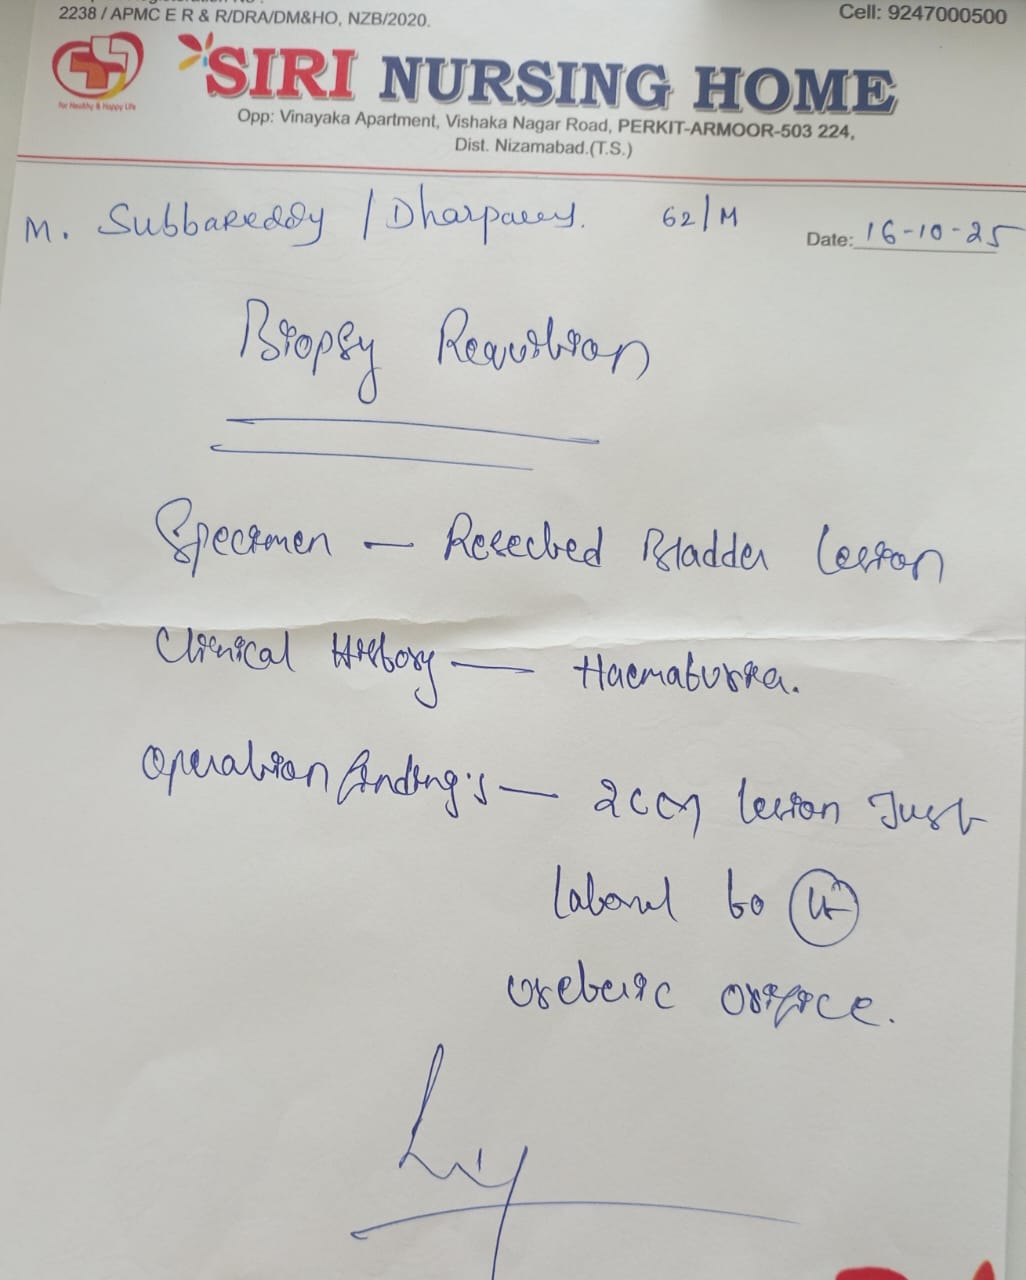 2238 / APMC E R & R/DRA/DM&HO, NZB/2020.
Cell: 9247000500
SIRI NURSING HOME
for Healthy & Happy Life
Opp: Vinayaka Apartment, Vishaka Nagar Road, PERKIT-ARMOOR-503 224,
Dist. Nizamabad.(T.S.)
M. SubbaReddy / 62/M
Date: 16-10-25
Biopsy
Specimen — Resected Bladder lesion
Clinical History — Haematuria.
Operation finding's — 2cm lesion Just
lateral to Lt
ureteric orifice.